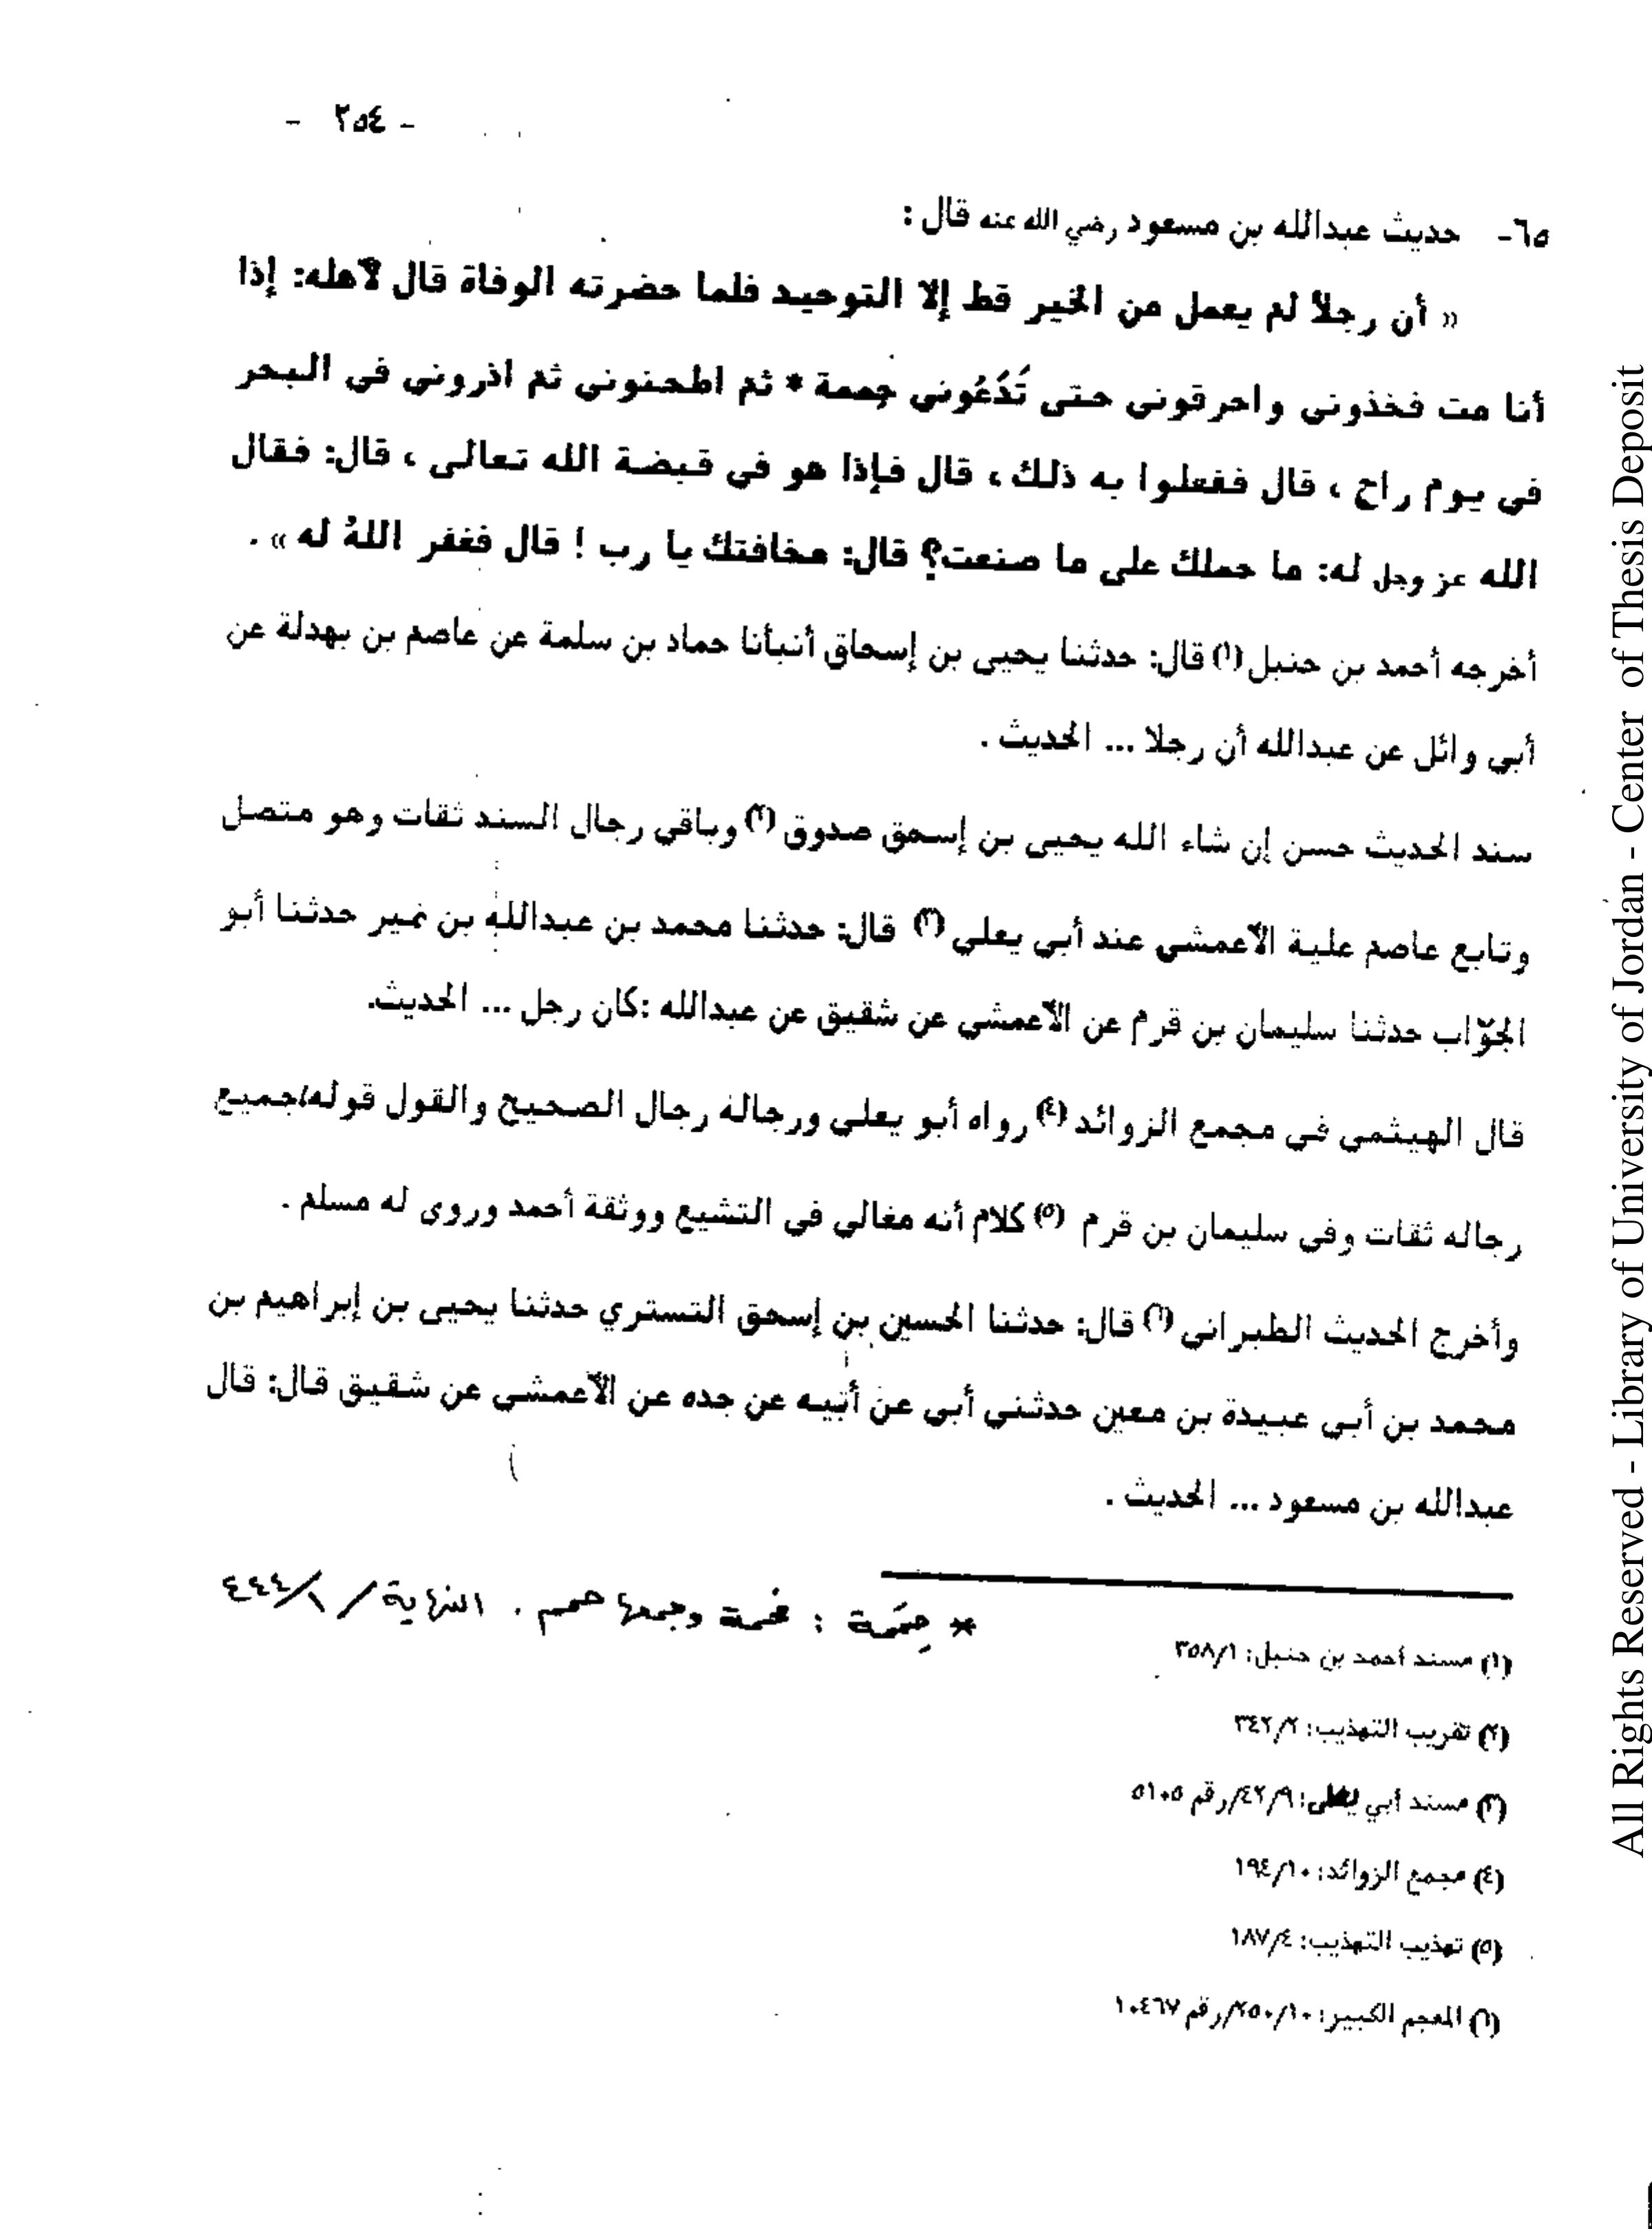 - ٢٥٤ -
٦٥- حديث عبدالله بن مسعود رضي الله عنه قال :
« أن رجلاً لم يعمل من الخير قط إلا التوحيد فلما حضرته الوفاة قال لأهله: إذا
أنا مت فخذوني واحرقوني حتى تَدَعُوني حِممة * ثم اطحنوني ثم اذروني في البحر
في يوم راح ، قال ففعلوا به ذلك ، قال فإذا هو في قبضة الله تعالى ، قال: فقال
الله عز وجل له: ما حملك على ما صنعت؟ قال: مخافتك يا رب ! قال فغفر اللهُ له » .
أخرجه أحمد بن حنبل (١) قال: حدثنا يحيى بن إسحاق أنبأنا حماد بن سلمة عن عاصم بن بهدلة عن
أبي وائل عن عبدالله أن رجلا ... الحديث .
سند الحديث حسن إن شاء الله يحيى بن إسحق صدوق (٢) وباقي رجال السند ثقات وهو متصل
وتابع عاصم علية الأعمشي عند أبي يعلي (٣) قال: حدثنا محمد بن عبدالله بن نمير حدثنا أبو
الجوّاب حدثنا سليمان بن قرم عن الأعمشي عن شقيق عن عبدالله :كان رجل ... الحديث.
قال الهيثمي في مجمع الزوائد (٤) رواه أبو يعلي ورجاله رجال الصحيح والقول قوله/جميع
رجاله ثقات وفي سليمان بن قرم (٥) كلام أنه مغالي في التشيع ووثقة أحمد وروى له مسلم .
وأخرج الحديث الطبراني (٦) قال: حدثنا الحسين بن إسحق التستري حدثنا يحيى بن إبراهيم بن
محمد بن أبي عبيدة بن معين حدثني أبي عن أبيه عن جده عن الأعمشي عن شقيق قال: قال
عبدالله بن مسعود ... الحديث .
* حِمَمة : فحمة وجمعها حمم . النهاية / ١/٤٤٤
(١) مسند أحمد بن حنبل: ٣٥٨/١
(٢) تقريب التهذيب: ٣٤٢/٢
(٣) مسند أبي يعلى: ٤٢/٩/رقم ٥١٠٥
(٤) مجمع الزوائد: ١٩٤/١٠
(٥) تهذيب التهذيب: ١٨٧/٤
(٦) المعجم الكبير: ٢٥٠/١٠/رقم ١٠٤٦٧
All Rights Reserved - Library of University of Jordan - Center of Thesis Deposit